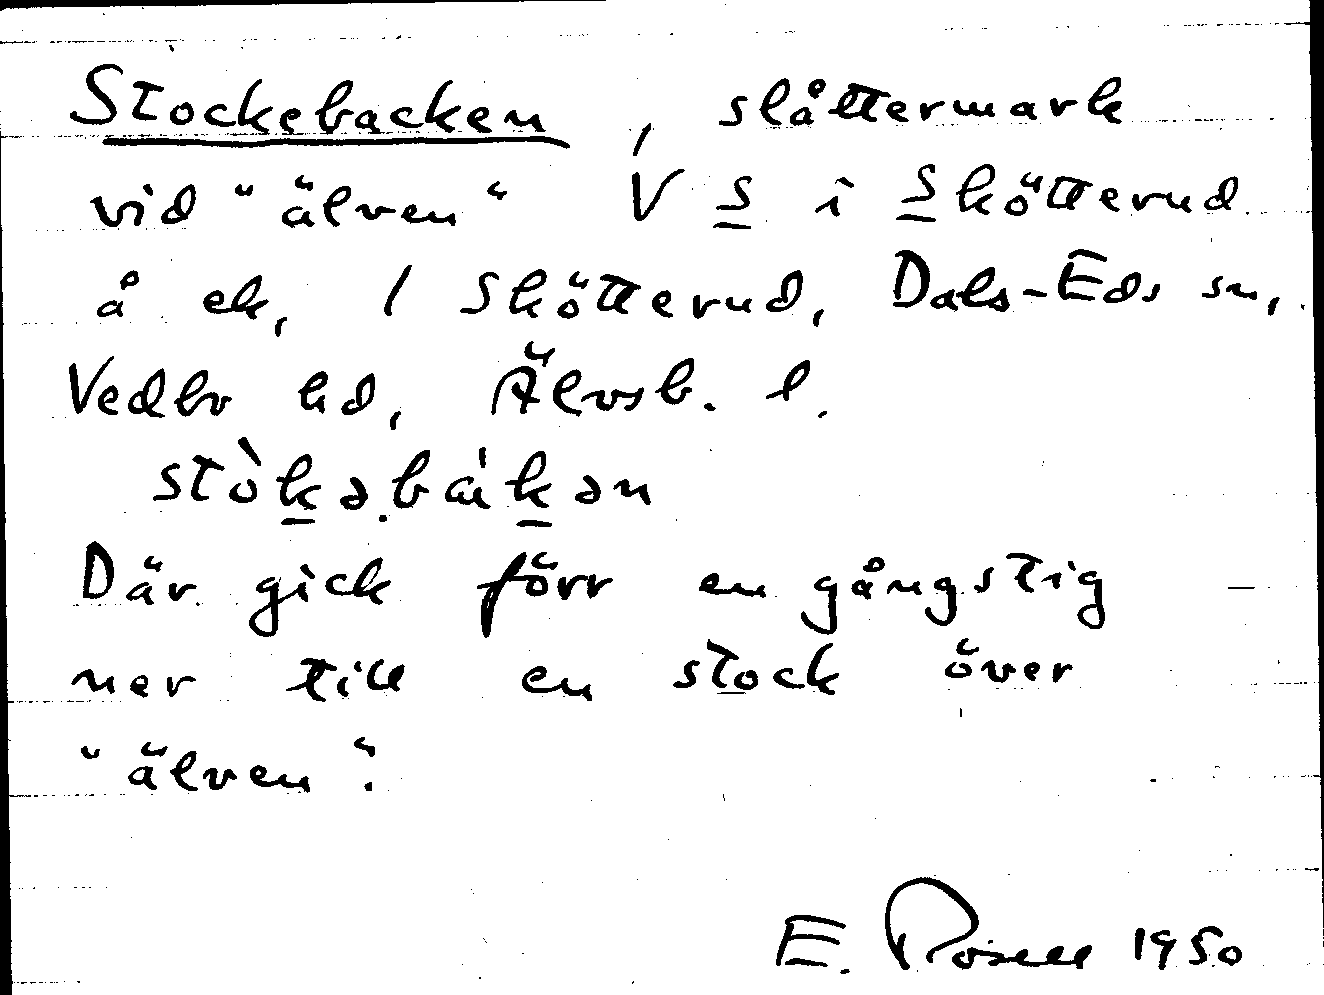 Stockebacken, slåttermark
vid "älven" V S i Skötterud
å ek, 1 Skötterud, Dals-Eds sn,
Vedbo hd, Älvsb. l.
stòkəbàkən
Där gick förr en gångstig
ner till en stock över
"älven".
E. Rosell 1950